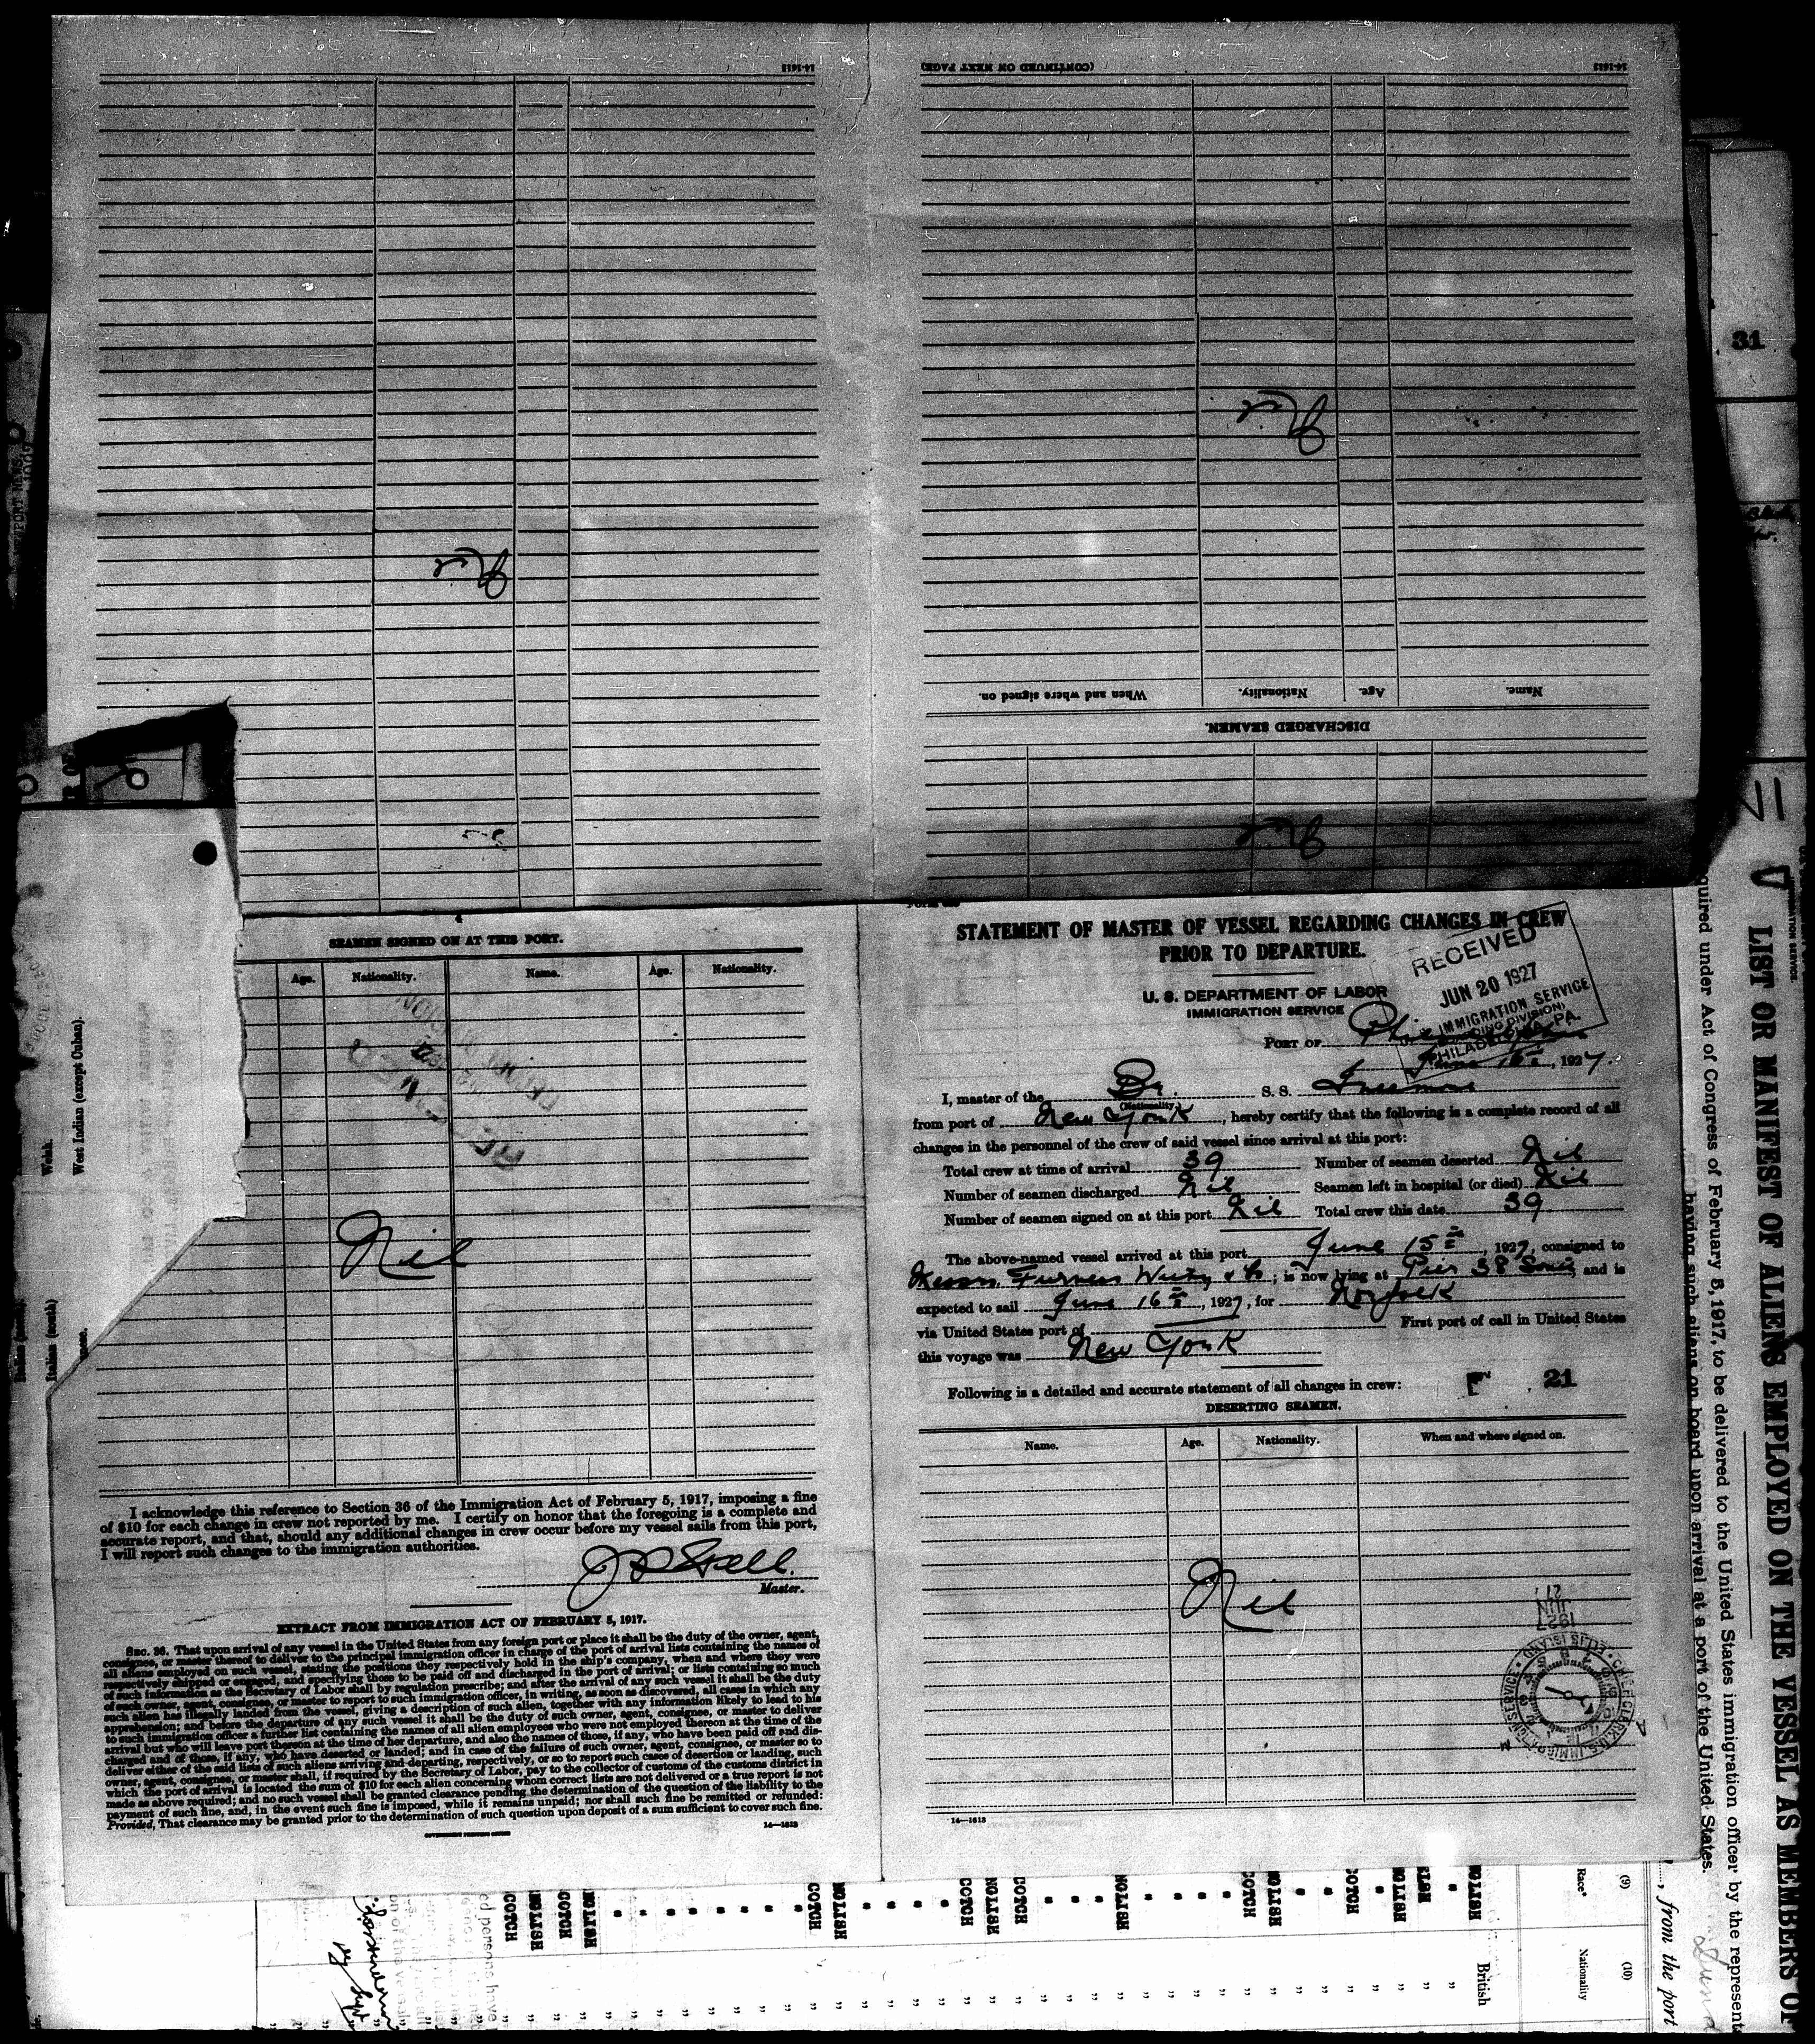 (CONTINUED ON NEXT PAGE)
14-1613
14-1613
Nil
Nil
Name.
Age.
Nationality.
When and where signed on.
DISCHARGED SEAMEN.
Nil
31
SEAMEN SIGNED ON AT THIS PORT.
Age.
Nationality.
Name.
Age.
Nationality.
Nil
I acknowledge this reference to Section 36 of the Immigration Act of February 5, 1917, imposing a fine
of $10 for each change in crew not reported by me. I certify on honor that the foregoing is a complete and
accurate report, and that, should any additional changes in crew occur before my vessel sails from this port,
I will report such changes to the immigration authorities.
Master.
EXTRACT FROM IMMIGRATION ACT OF FEBRUARY 5, 1917.
SEC. 36. That upon arrival of any vessel in the United States from any foreign port or place it shall be the duty of the owner, agent,
consignee, or master thereof to deliver to the principal immigration officer in charge of the port of arrival lists containing the names of
all aliens employed on such vessel, stating the positions they respectively hold in the ship's company, when and where they were
respectively shipped or engaged, and specifying those to be paid off and discharged in the port of arrival; or lists containing so much
of such information as the Secretary of Labor shall by regulation prescribe; and after the arrival of any such vessel it shall be the duty
of such owner, agent, consignee, or master to report to such immigration officer, in writing, as soon as discovered, all cases in which any
such alien has illegally landed from the vessel, giving a description of such alien, together with any information likely to lead to his
apprehension; and before the departure of any such vessel it shall be the duty of such owner, agent, consignee, or master to deliver
to such immigration officer a further list containing the names of all alien employees who were not employed thereon at the time of the
arrival but who will leave port thereon at the time of her departure, and also the names of those, if any, who have been paid off and dis-
charged and of those, if any, who have deserted or landed; and in case of the failure of such owner, agent, consignee, or master so to
deliver either of the said lists of such aliens arriving and departing, respectively, or so to report such cases of desertion or landing, such
owner, agent, consignee, or master shall, if required by the Secretary of Labor, pay to the collector of customs of the customs district in
which the port of arrival is located the sum of $10 for each alien concerning whom correct lists are not delivered or a true report is not
made as above required; and no such vessel shall be granted clearance pending the determination of the question of the liability to the
payment of such fine, and, in the event such fine is imposed, while it remains unpaid; nor shall such fine be remitted or refunded:
Provided, That clearance may be granted prior to the determination of such question upon deposit of a sum sufficient to cover such fine.
GOVERNMENT PRINTING OFFICE
14—1613
STATEMENT OF MASTER OF VESSEL REGARDING CHANGES IN CREW
PRIOR TO DEPARTURE.
U. S. DEPARTMENT OF LABOR
IMMIGRATION SERVICE
RECEIVED
JUN 20 1927
IMMIGRATION SERVICE
PHILADELPHIA, PA.
PORT OF Philadelphia
June 16th, 1927.
I, master of the Br. S. S.
(Nationality.)
from port of New York, hereby certify that the following is a complete record of all
changes in the personnel of the crew of said vessel since arrival at this port:
Total crew at time of arrival 39 Number of seamen deserted Nil
Number of seamen discharged Nil Seamen left in hospital (or died) Nil
Number of seamen signed on at this port Nil Total crew this date 39
The above-named vessel arrived at this port June 15th, 1927, consigned to
Messrs. Furness Withy & Co; is now lying at Pier 38 South, and is
expected to sail June 16th, 1927, for Norfolk
via United States port of First port of call in United States
this voyage was New York
Following is a detailed and accurate statement of all changes in crew:
21
DESERTING SEAMEN.
Name.
Age.
Nationality.
When and where signed on.
Nil
1927
JUN
21
14—1613
LIST OR MANIFEST OF ALIENS EMPLOYED ON THE VESSEL AS MEMBERS OF
quired under Act of Congress of February 5, 1917, to be delivered to the United States immigration officer by the represent
having such aliens on board upon arrival at a port of the United States.
, from the port
(9)
Race*
(10)
Nationality
British
West Indian (except Cuban).
Welsh.
Italian (south)